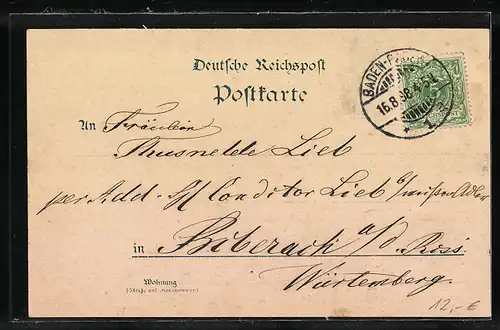 Deutsche Reichspost
Postkarte
BADEN-BADEN
16.8.98. 4-5N
* 1. a
An Fräulein
Thusnelde Lieb
per Add. Conditor Lieb
in Biberach a/d. Riss
Würtemberg.
Wohnung
(Straße und Hausnummer)
12,- €